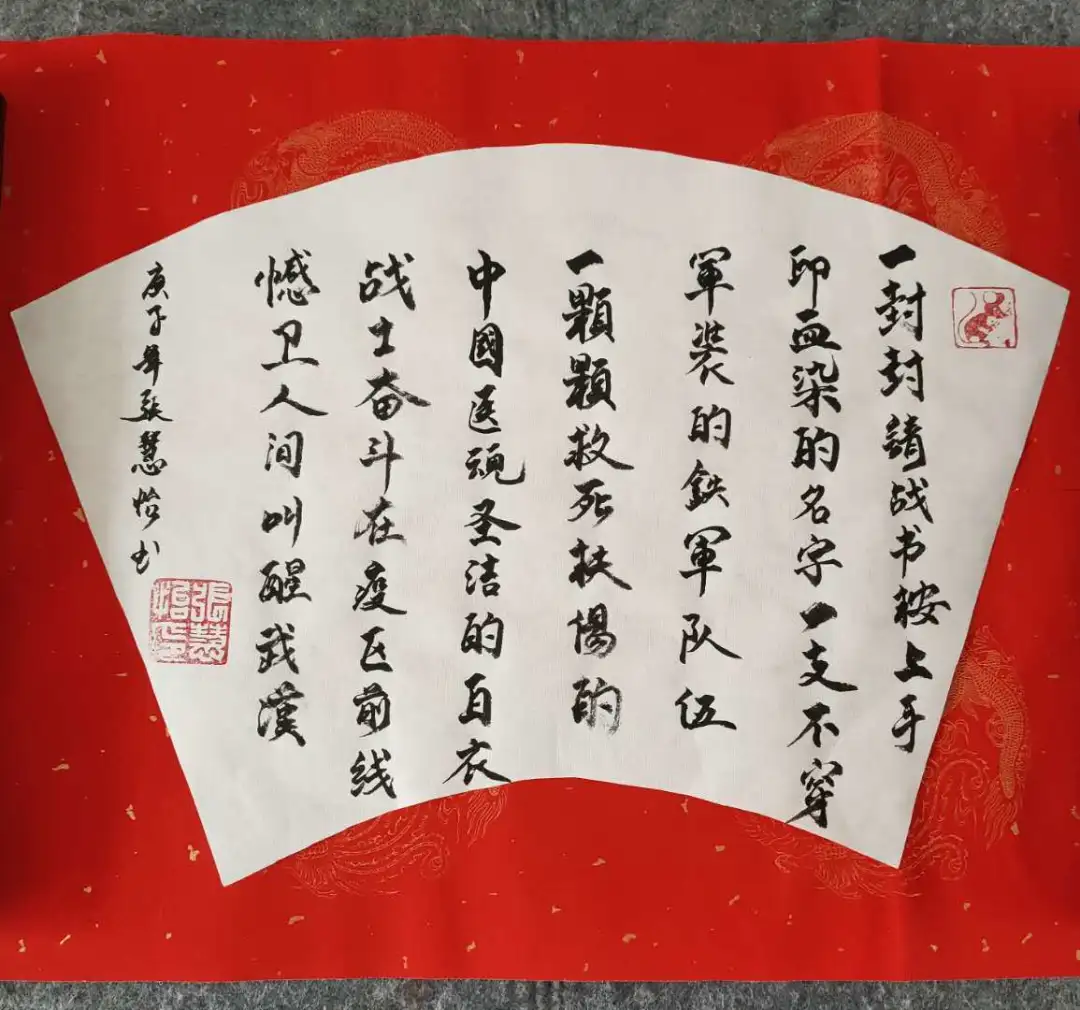 一封封請战书按上手
印血染的名字一支不穿
軍装的鉄軍队伍
一顆顆救死扶傷的
中國医魂圣洁的白衣
战士奋斗在疫区前线
憾卫人间叫醒武漢
庚子年張慧怡书
張慧
怡印